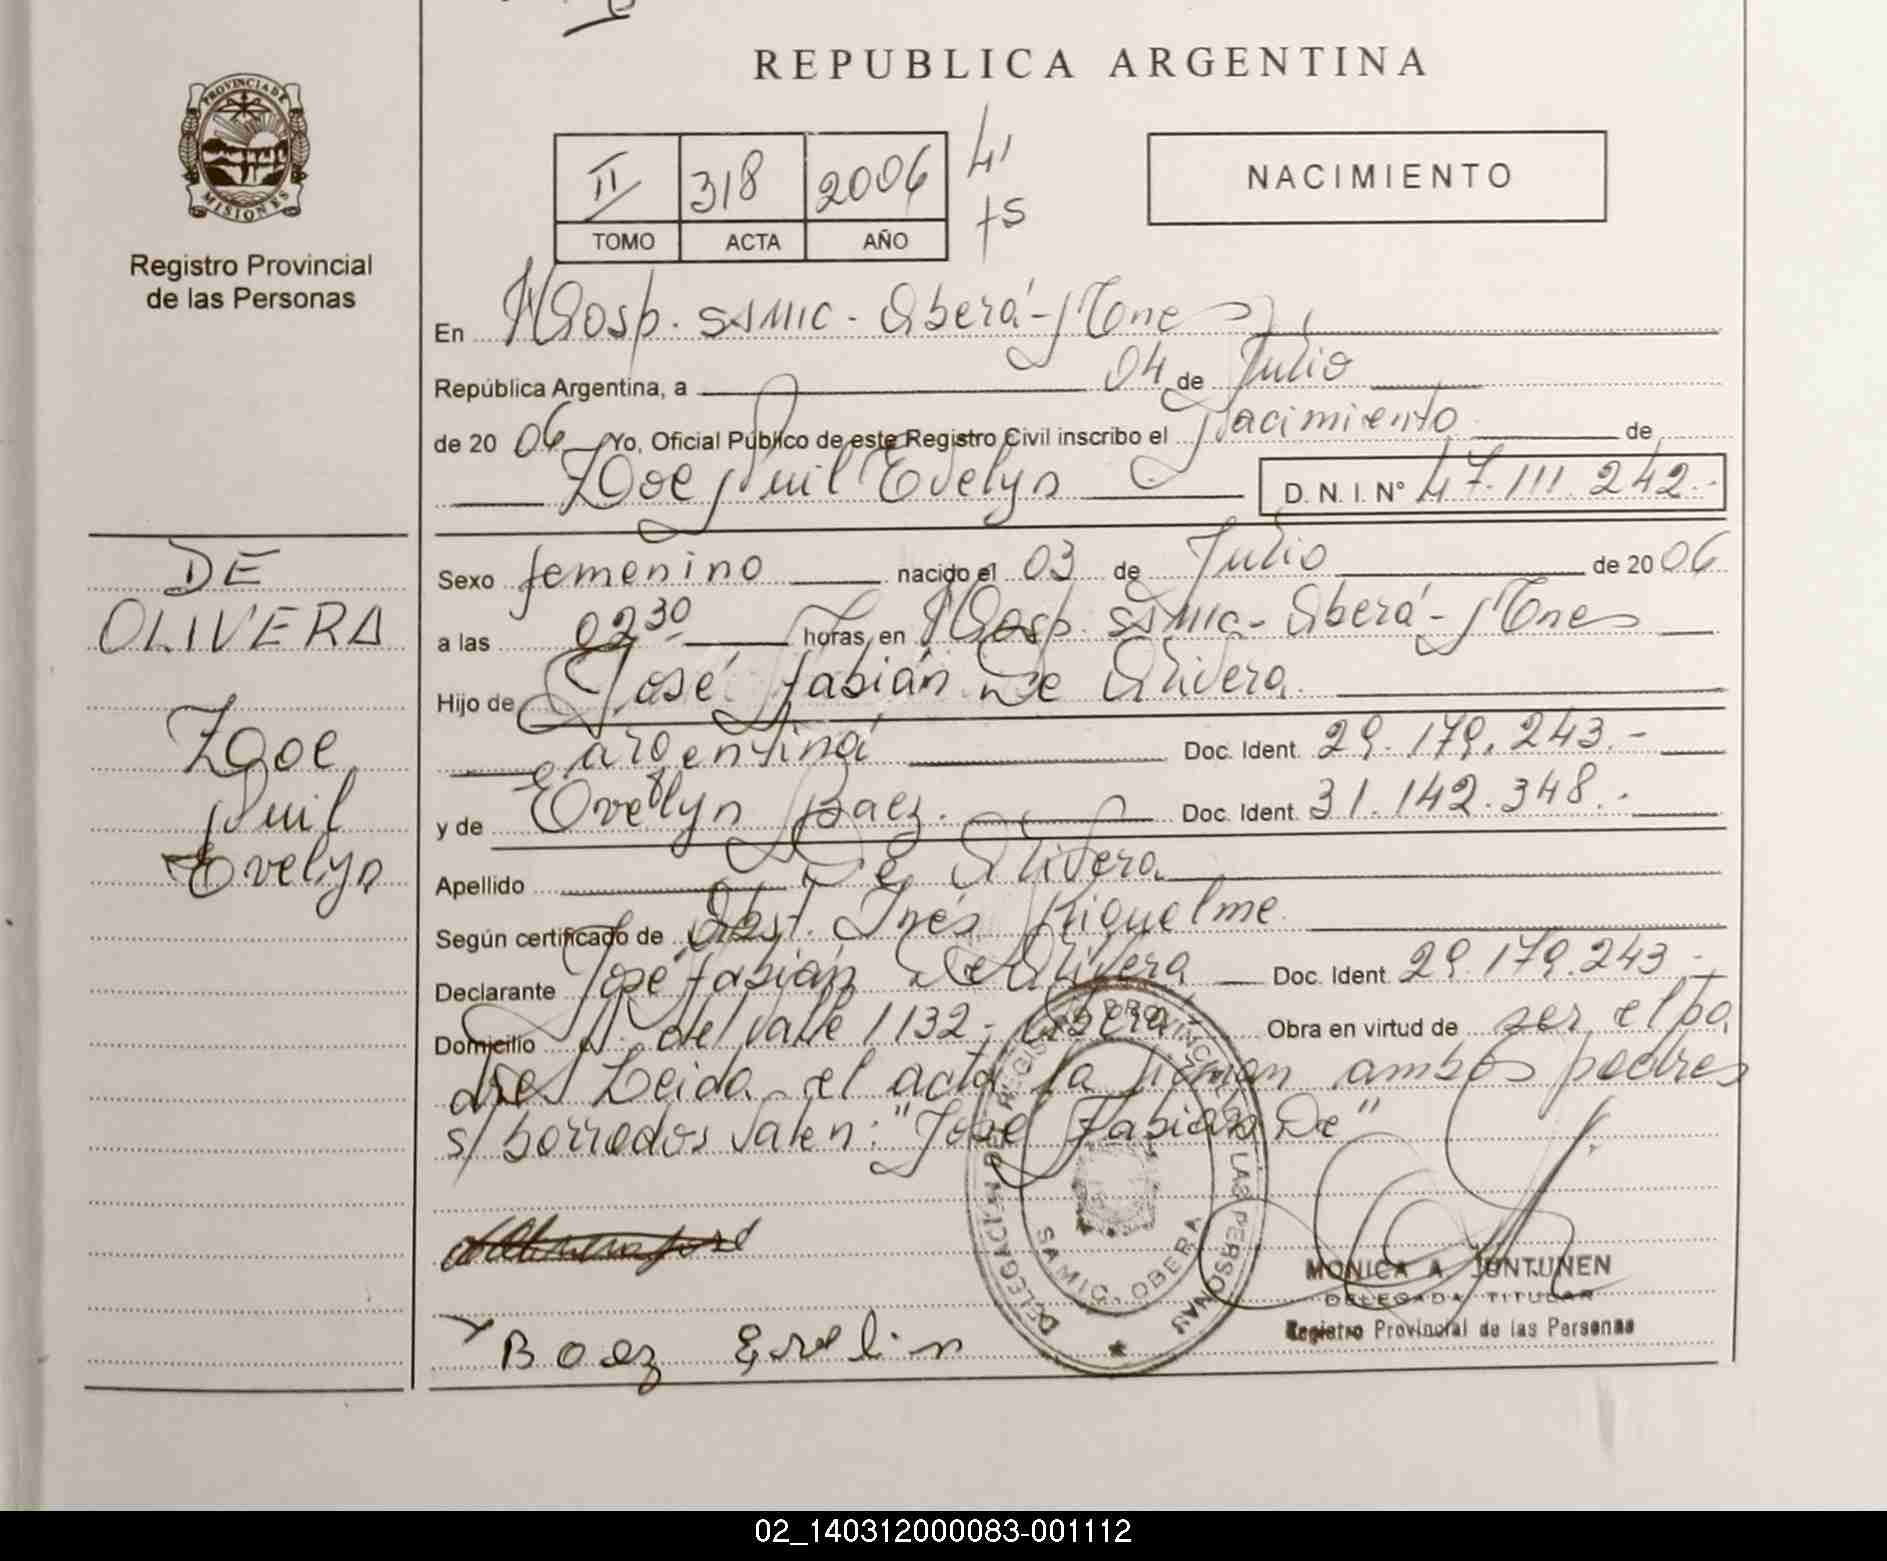 REPUBLICA ARGENTINA
PROVINCIA DE MISIONES
Registro Provincial
de las Personas
II 318 2006
TOMO ACTA AÑO
NACIMIENTO
En Hosp. SAMIC - Oberá - Mnes
República Argentina, a 04 de Julio
de 20 06 Yo, Oficial Público de este Registro Civil inscribo el Nacimiento de
Zoe Nuil Evelyn D. N. I. N° 47.111.242.-
DE
OLIVERA
Zoe
Nuil
Evelyn
Sexo femenino nacido el 03 de Julio de 20 06
a las 02 30 horas, en Hosp. SAMIC - Oberá - Mnes
Hijo de José Fabián De Olivera
argentina Doc. Ident. 29.179.243.-
y de Evelyn Baez. Doc. Ident. 31.142.348.-
Apellido De Olivera
Según certificado de Obst. Inés Riquelme
Declarante José Fabián De Olivera Doc. Ident. 29.179.243.-
Domicilio del Valle 1132 - Oberá Obra en virtud de ser el pa
dre Leida el acta la firman ambos padres
s/ borrados Valen: "José Fabián De"
DELEGACION DE REGISTRO PROVINCIAL DE LAS PERSONAS
SAMIC, OBERA
MONICA A. JUNTUNEN
DELEGADA TITULAR
Registro Provincial de las Personas
Baez Evelin
02_140312000083-001112